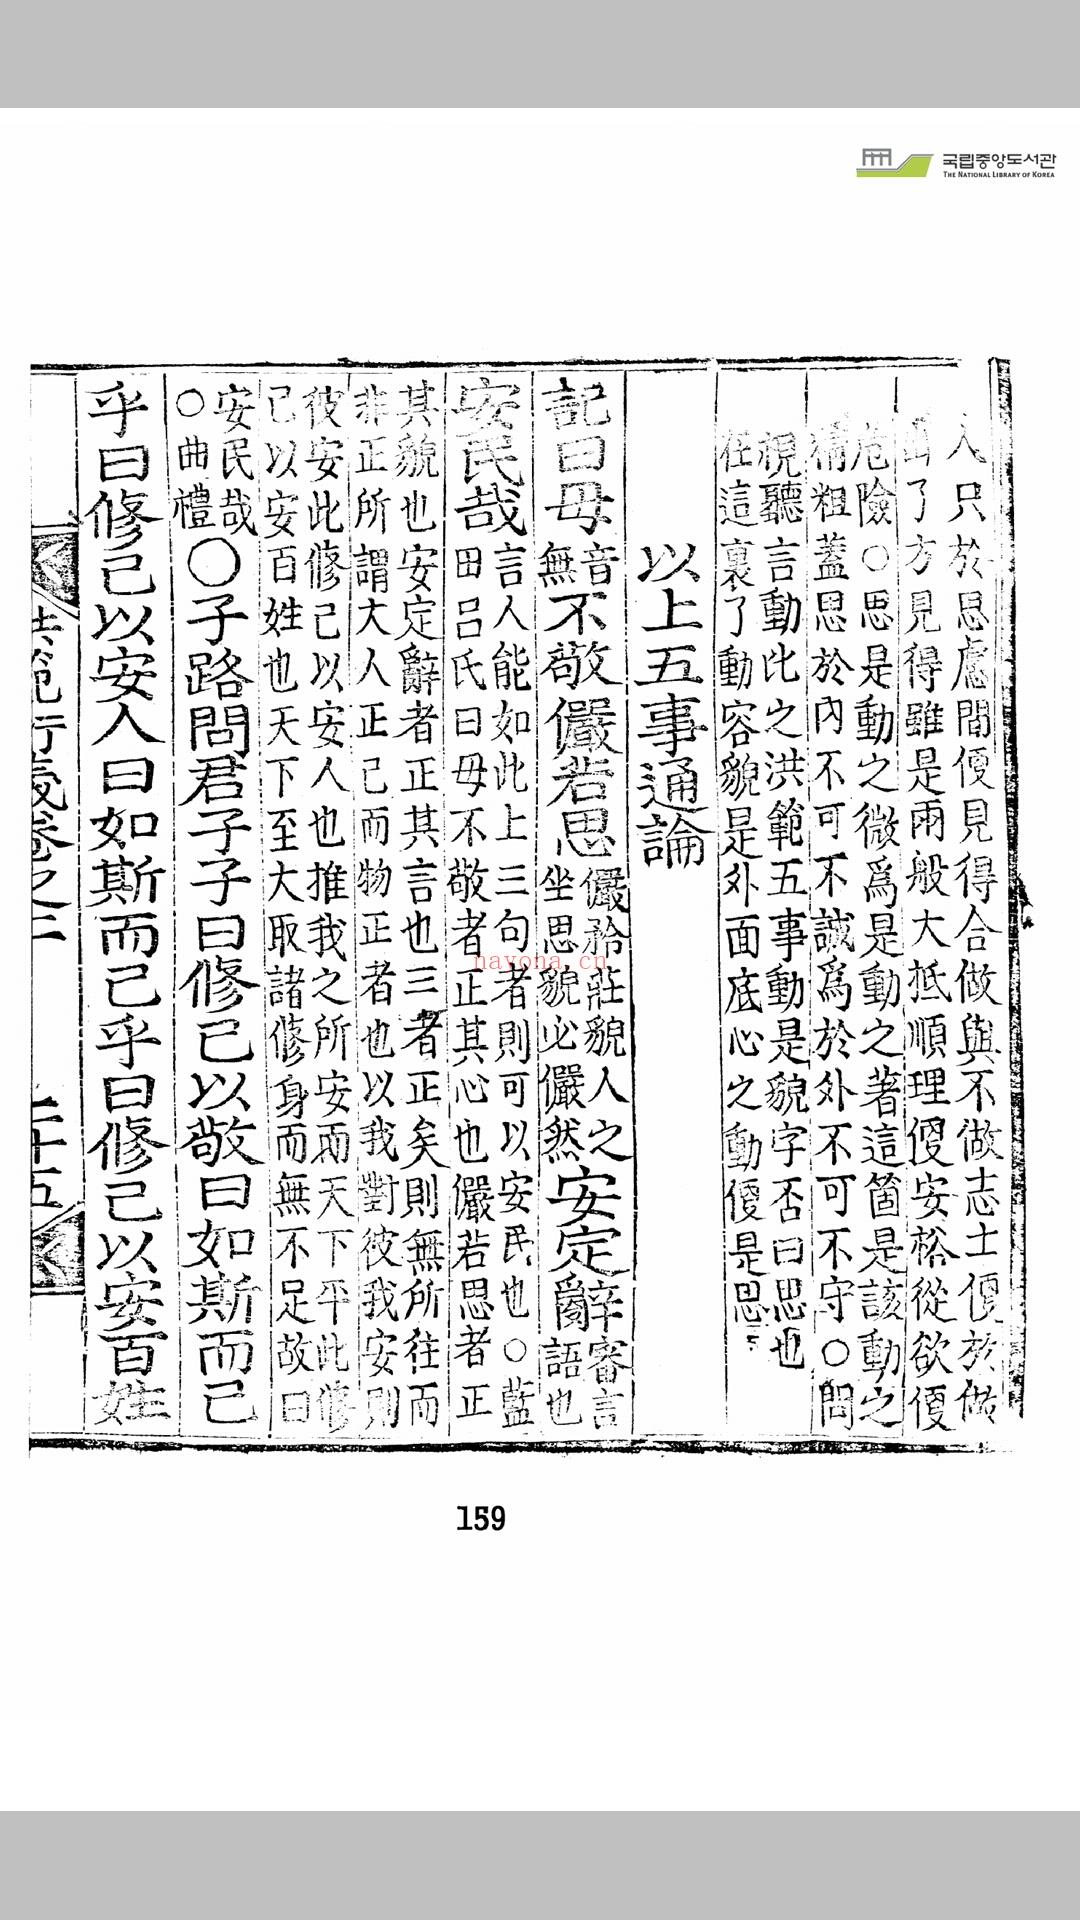 국립중앙도서관
THE NATIONAL LIBRARY OF KOREA
人只於思慮間便見得合做與不做志士便於做
了方見得雖是兩般大抵順理便安裕從欲便
危險○思是動之微爲是動之著這箇是該動之
精粗蓋思於內不可不誠爲於外不可不守○問
視聽言動比之洪範五事動是貌字否曰思也
在這裏了動容貌是外面底心之動便是思
以上五事通論
記曰毋
音
無
不敬儼若思
儼矜莊貌人之
坐思貌必儼然
安定辭
審言
語也
安民哉
言人能如此上三句者則可以安民也○藍
田呂氏曰毋不敬者正其心也儼若思者正
其貌也安定辭者正其言也三者正矣則無所往而
非正所謂大人正己而物正者也以我對彼我安則
彼安此修己以安人也推我之所安而天下平此修
己以安百姓也天下至大取諸修身而無不足故曰
安民哉
○曲禮
○子路問君子子曰修己以敬曰如斯而已
乎曰修己以安人曰如斯而已乎曰修己以安百姓
洪範衍義卷之二
二十五
nayona.cn
159